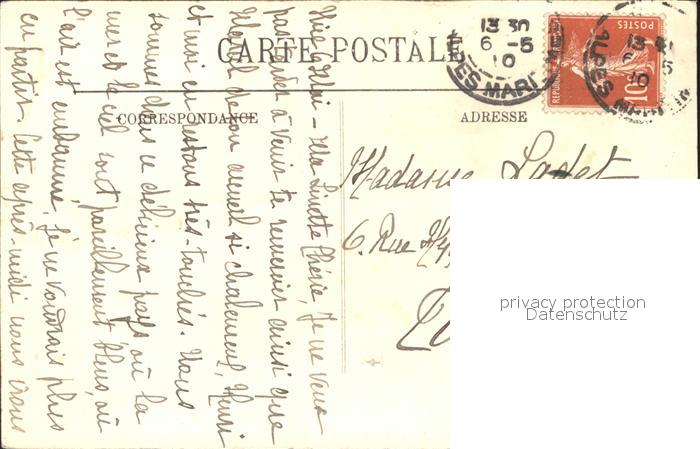 CARTE POSTALE
CORRESPONDANCE
ADRESSE
13 30
6 -5
10
ES MARI
POSTES
10
ALPES
Madame Ladet
6. Rue
privacy protection
Datenschutz
Nice 6 Mai - Ma Linette Chérie, Je ne veux
pas tarder à venir te remercier ainsi que
de ton accueil si chaleureux, Henri
et moi en restons très-touchés. Nous
sommes dans ce délicieux pays, où la
mer et le ciel sont pareillement bleus, où
l'air est embaumé, je ne voudrais plus
en partir. Cette après-midi nous irons